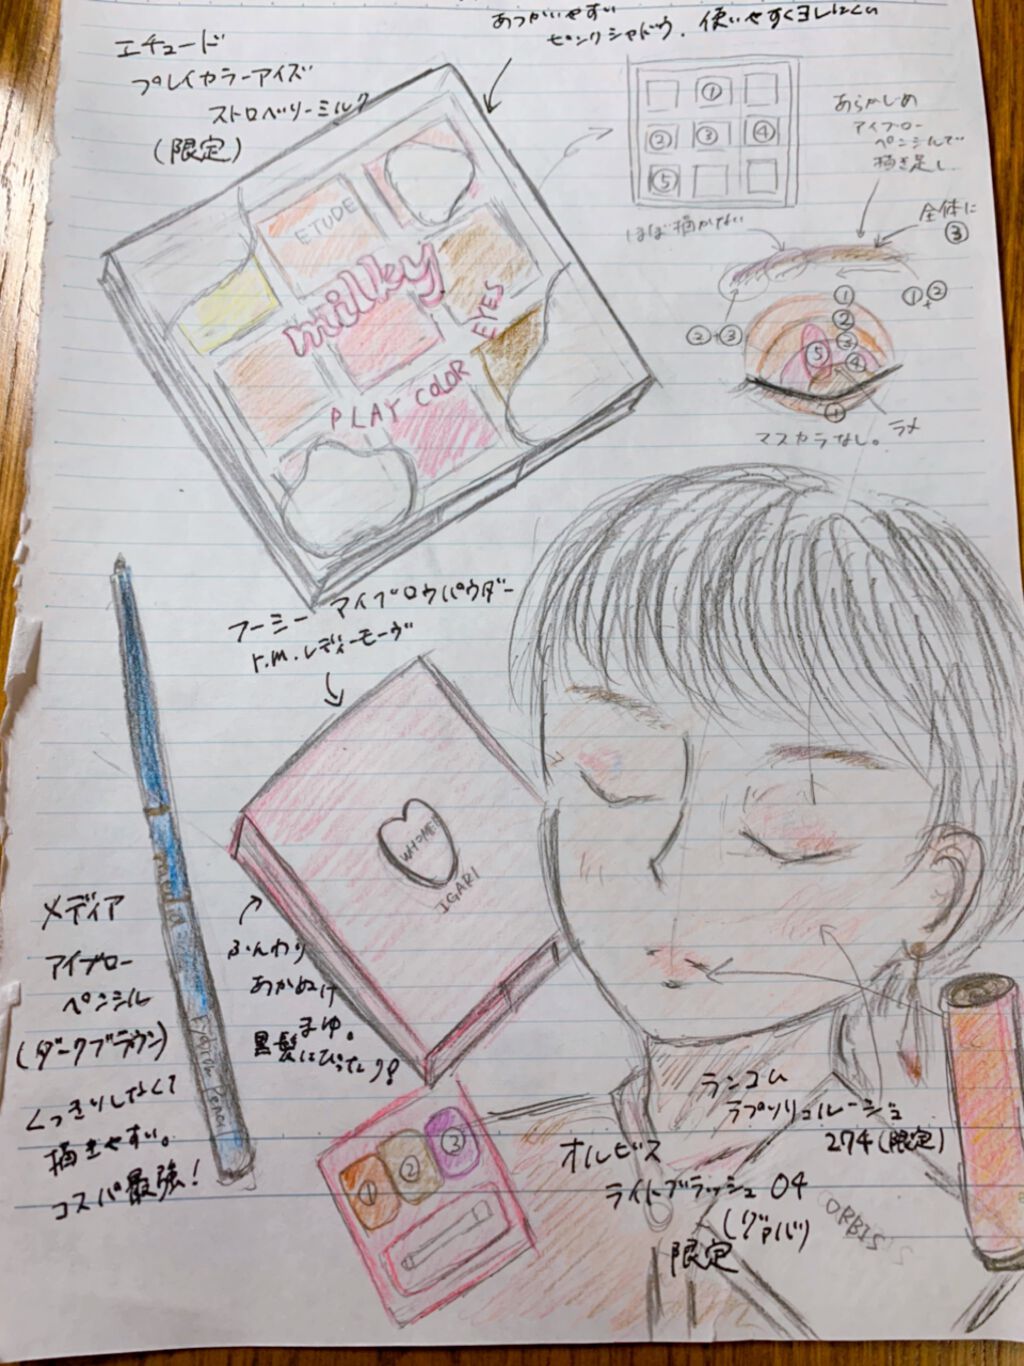 エチュード
プレイカラーアイズ
ストロベリーミルク
(限定)
あつかいやすい
ピンクシャドウ。使いやすくヨレにくい
ETUDE
milky
EYES
PLAY COLOR
①
② ③ ④
⑤
あらかじめ
アイブロー
ペンシルで
描き足し
全体に
③
ほぼ描かない
②+③
①+②
①
②
③
④
⑤
①
ラメ
マスカラなし。
フーミー アイブロウパウダー
r.m.レディーモーヴ
WHOMEE
IGARI
ふんわり
あかぬけ
まゆ。
黒髪にぴったり!
メディア
アイブロー
ペンシル
(ダークブラウン)
くっきりしなくて
描きやすい。
コスパ最強!
media
Eyebrow Pencil
① ② ③
ランコム
ラプソリュルージュ
274(限定)
オルビス
ライトブラッシュ 04
(グァバ)
限定
ORBIS